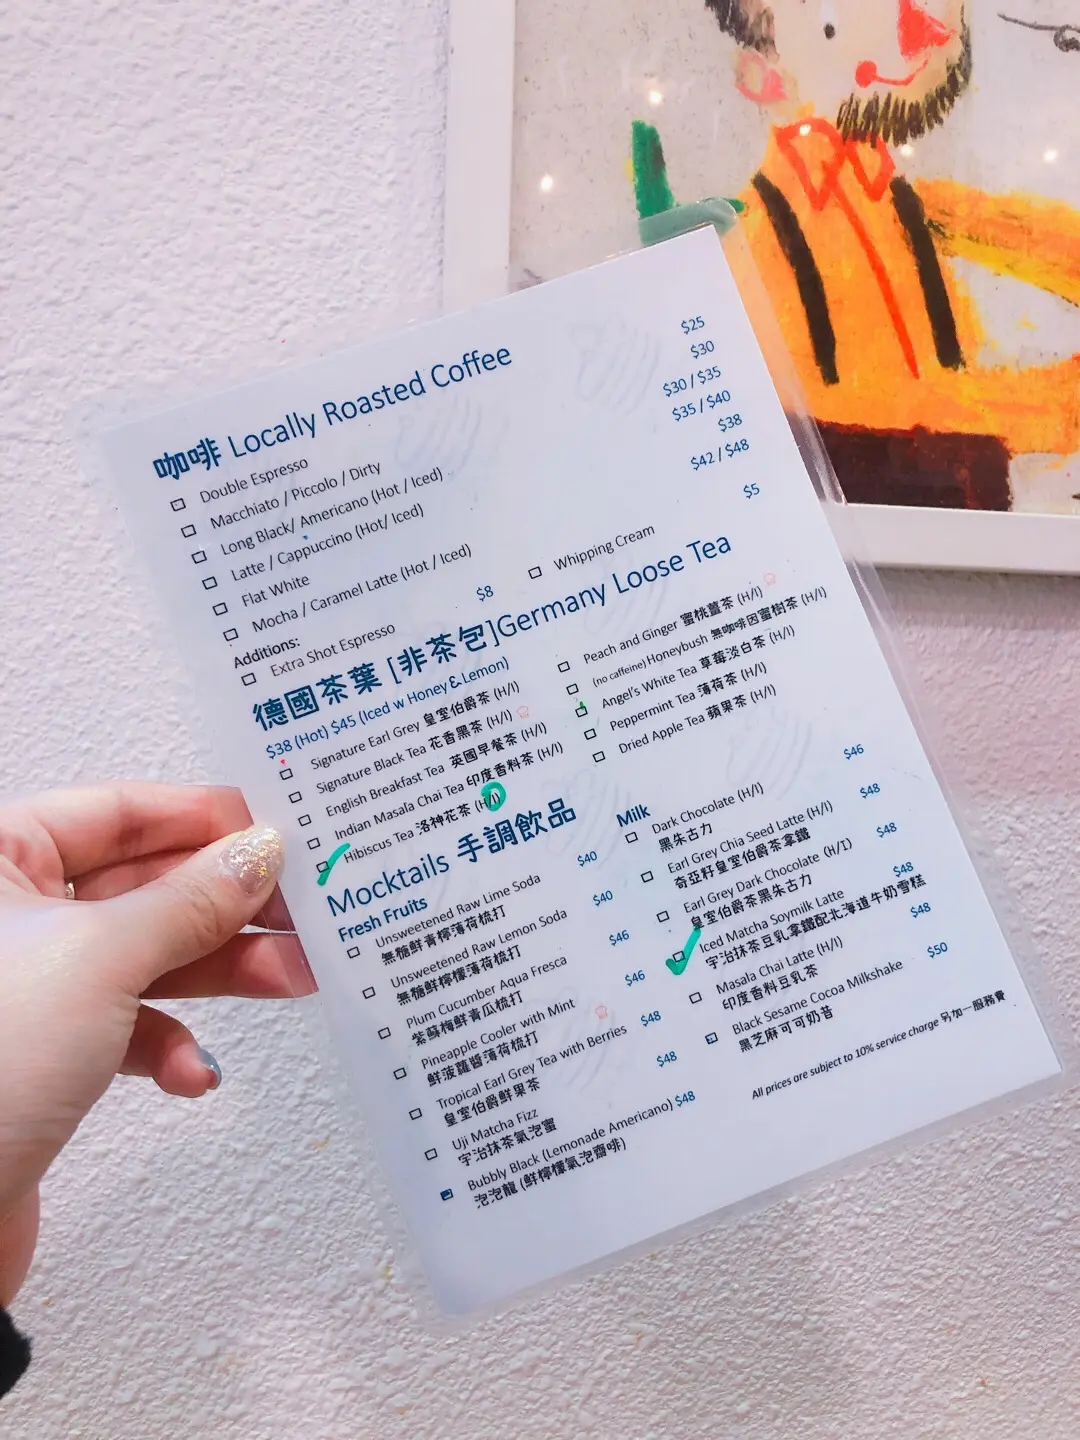 咖啡 Locally Roasted Coffee
Double Espresso $25
Macchiato / Piccolo / Dirty $30
Long Black/ Americano (Hot / Iced) $30 / $35
Latte / Cappuccino (Hot/ Iced) $35 / $40
Flat White $38
Mocha / Caramel Latte (Hot / Iced) $42 / $48
Additions:
Extra Shot Espresso $8
Whipping Cream $5
德國茶葉 [非茶包]Germany Loose Tea
$38 (Hot) $45 (Iced w Honey & Lemon)
Signature Earl Grey 皇室伯爵茶 (H/I)
Signature Black Tea 花香黑茶 (H/I)
English Breakfast Tea 英國早餐茶 (H/I)
Indian Masala Chai Tea 印度香料茶 (H/I)
Hibiscus Tea 洛神花茶 (H/I)
Peach and Ginger 蜜桃薑茶 (H/I)
(no caffeine) Honeybush 無咖啡因蜜樹茶 (H/I)
Angel's White Tea 草莓淡白茶 (H/I)
Peppermint Tea 薄荷茶 (H/I)
Dried Apple Tea 蘋果茶 (H/I)
Mocktails 手調飲品
Fresh Fruits
Unsweetened Raw Lime Soda $40
無糖鮮青檸薄荷梳打
Unsweetened Raw Lemon Soda $40
無糖鮮檸檬薄荷梳打
Plum Cucumber Aqua Fresca $46
紫蘇梅鮮青瓜梳打
Pineapple Cooler with Mint $46
鮮菠蘿醬薄荷梳打
Tropical Earl Grey Tea with Berries $48
皇室伯爵鮮果茶
Uji Matcha Fizz $48
宇治抹茶氣泡蜜
Bubbly Black (Lemonade Americano) $48
泡泡龍 (鮮檸檬氣泡齋啡)
Milk
Dark Chocolate (H/I) $46
黑朱古力
Earl Grey Chia Seed Latte (H/I) $48
奇亞籽皇室伯爵茶拿鐵
Earl Grey Dark Chocolate (H/I) $48
皇室伯爵茶黑朱古力
Iced Matcha Soymilk Latte $48
宇治抹茶豆乳拿鐵配北海道牛奶雪糕
Masala Chai Latte (H/I) $48
印度香料豆乳茶
Black Sesame Cocoa Milkshake $50
黑芝麻可可奶昔
All prices are subject to 10% service charge 另加一服務費